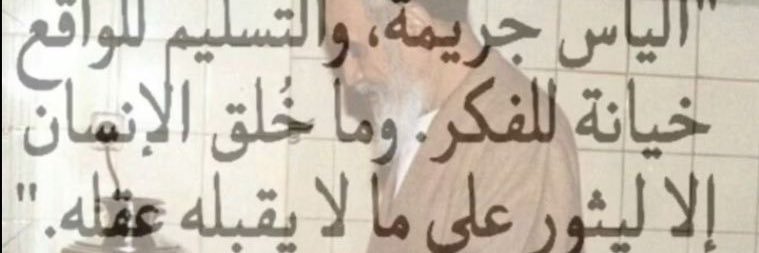 "اليأس جريمة، والتسليم للواقع
خيانة للفكر. وما خُلق الإنسان
إلا ليثور على ما لا يقبله عقله."